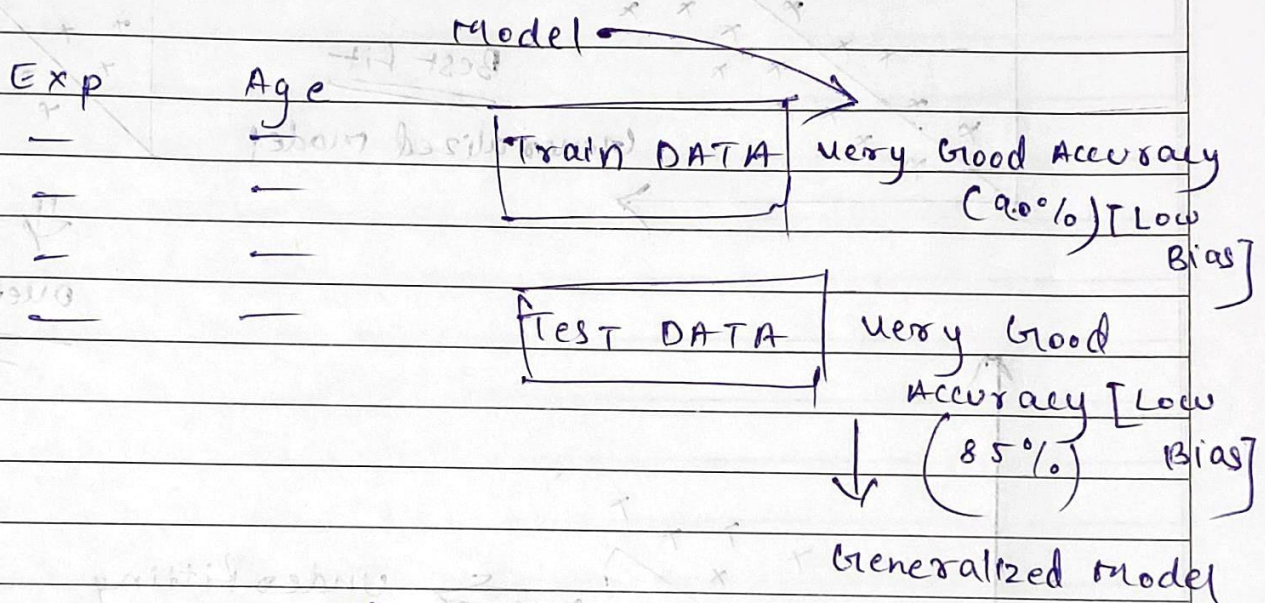 Model
Exp Age
Train DATA Very Good Accuracy
(90%) [Low
Bias]
Test DATA Very Good
Accuracy [Low
(85%) Bias]
Generalized Model